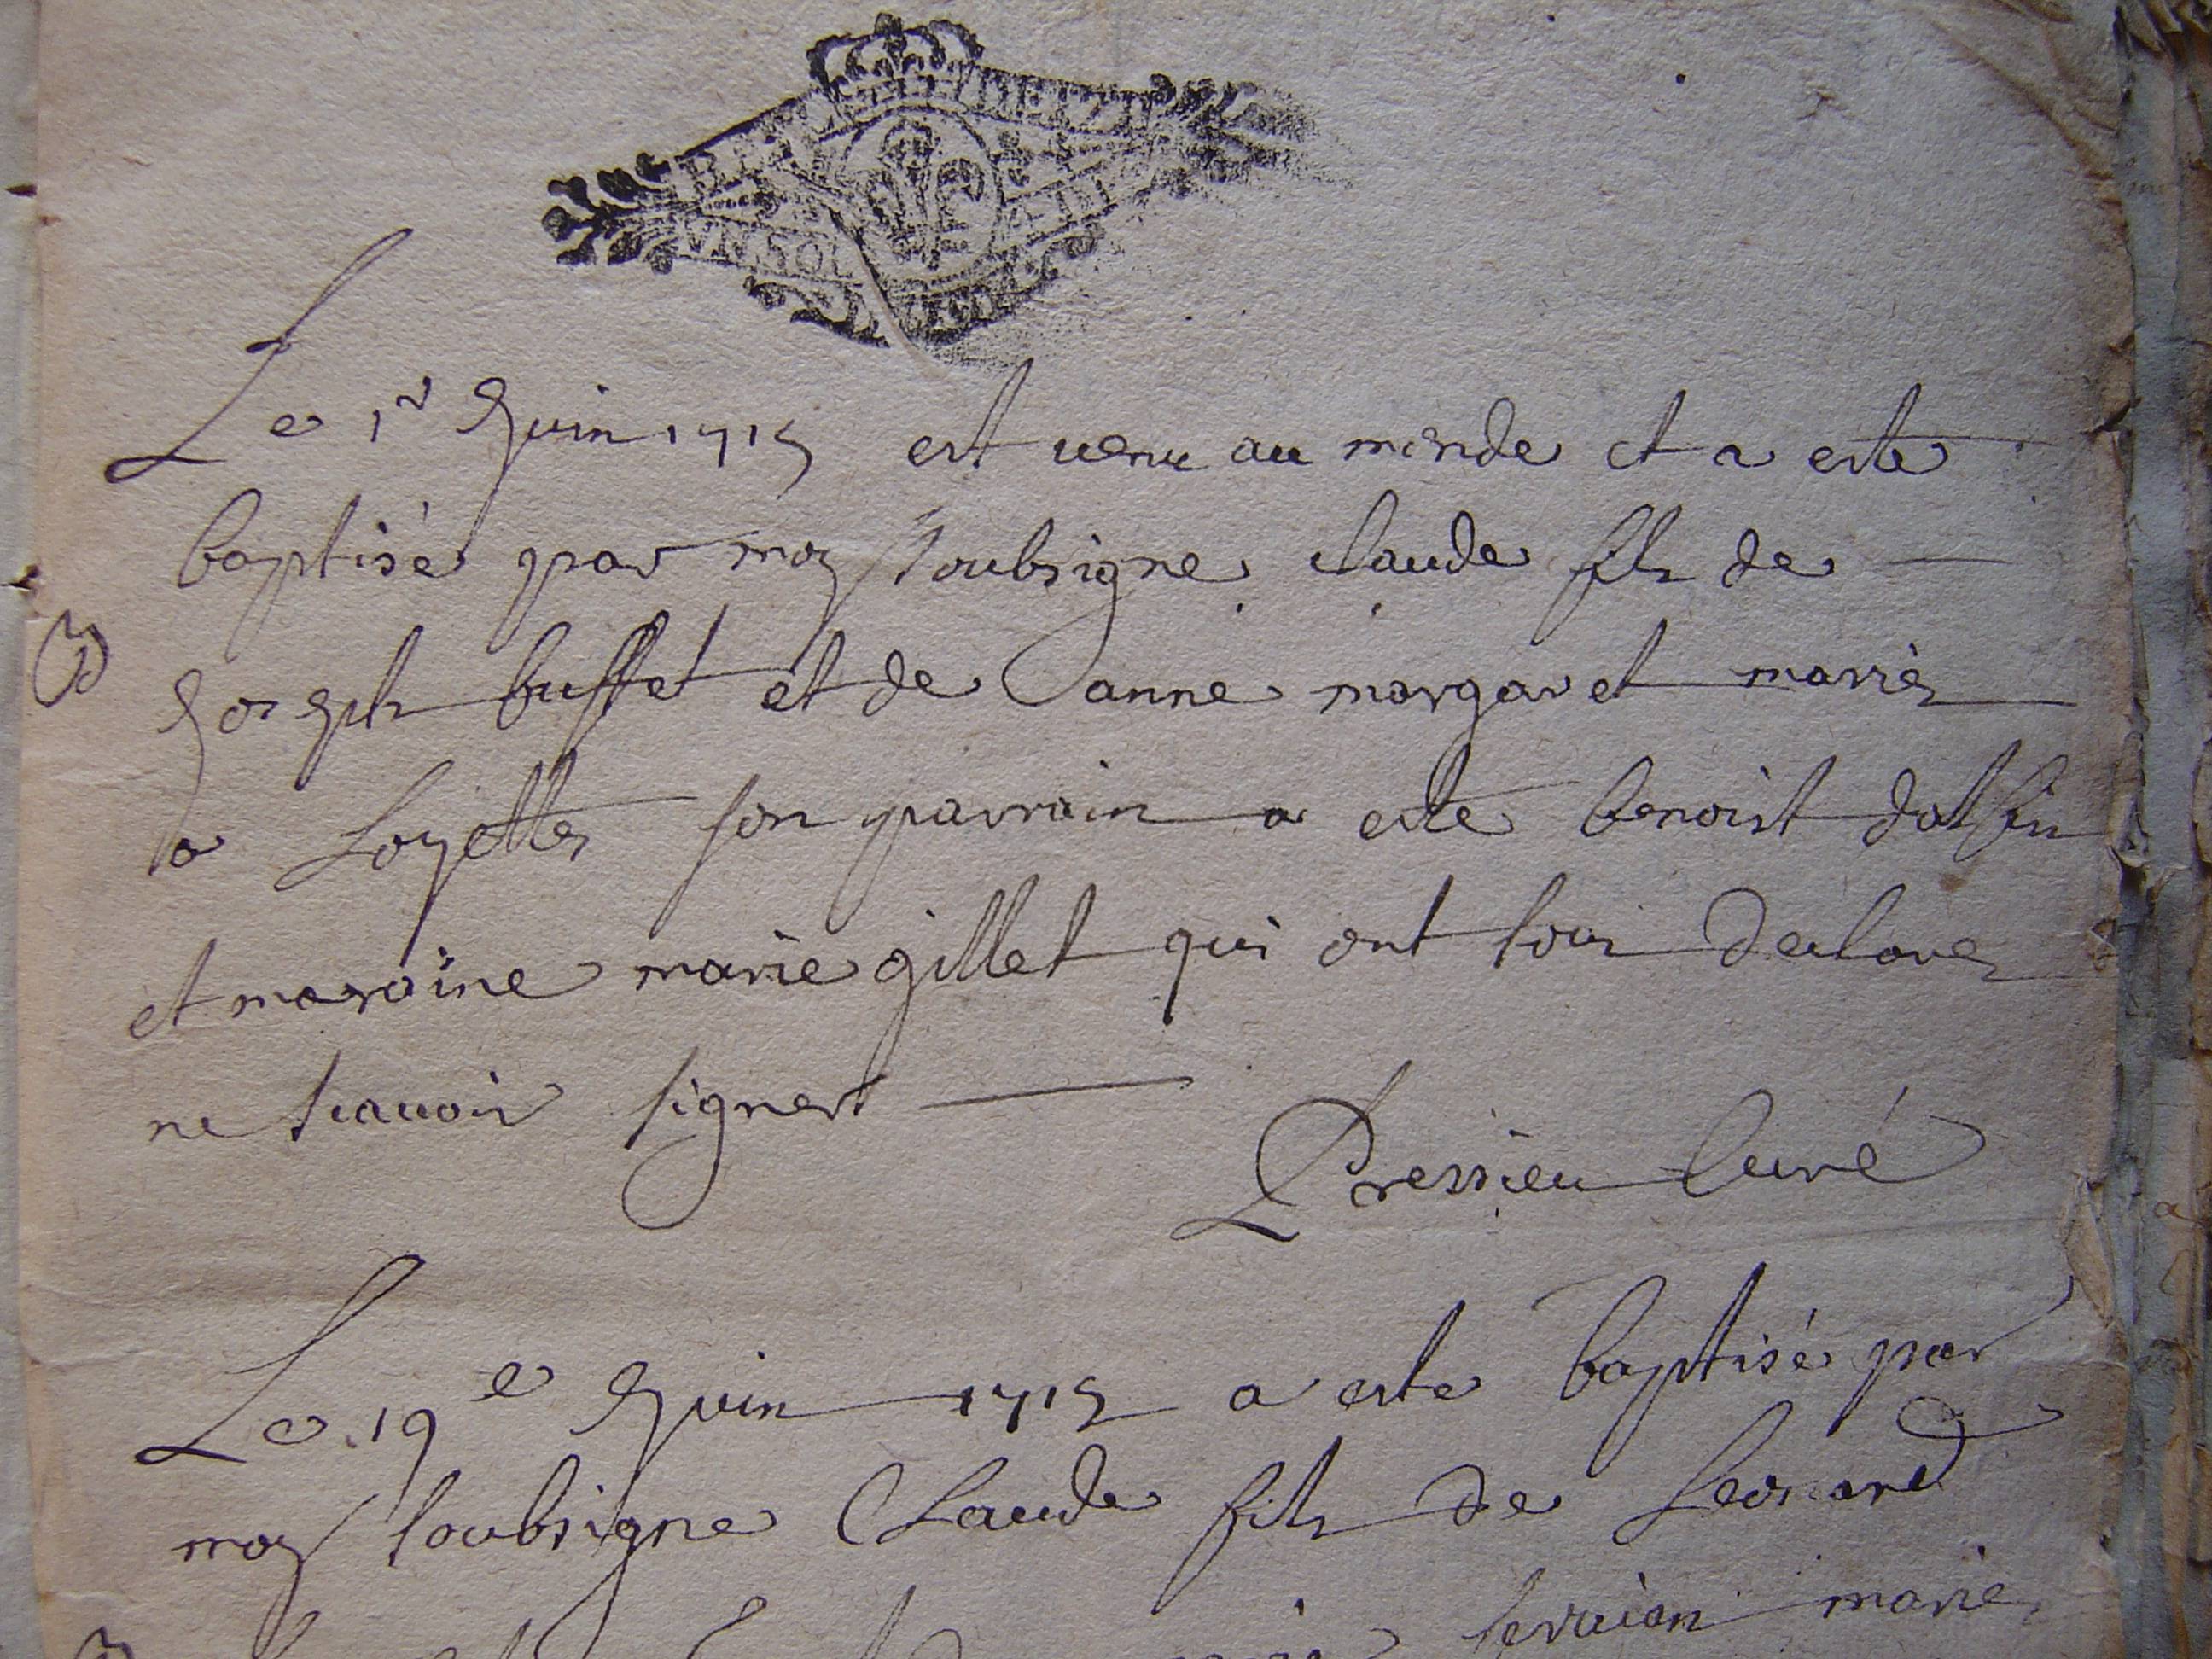 VN SOL
Le 1r Juin 1715 est venu au monde et a este
baptisé par moy soubsigne claude fils de
B
Joseph buffet et de Janne margaret mariés
a Loyettes son parrain a esté benoist dalfin
et maraine marie gillet qui ont tous declarez
ne scavoir signer
Pressieu Curé
Le 19e Juin 1715 a este baptisé par
moy soubsigne Claude fils de Leonard
terraion mariés